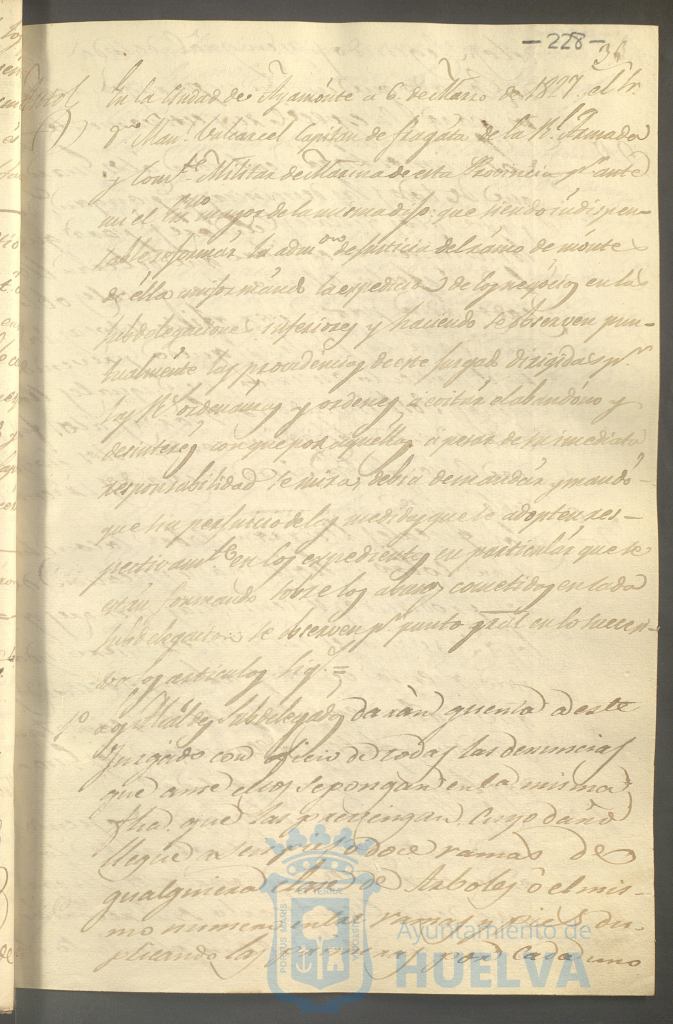 -228-
En la Ciudad de Ayamonte a 6 de Marzo de 1827 el Sr
Dn Manl Valcarcel Capitan de fragata de la Rl Armada
y Comte Militar de Marina de esta Provincia pr ante
mi el mayor de la misma dijo: que siendo indispen-
sable reformar la admon de justicia del ramo de monte
de ella uniformando la espedicion de los negocios en las
subdelegaciones inferiores y haciendo se observen pun-
tualmente las providencias de este Juzgado dirigidas pr
las Rs ordenanzas y ordenes a evitar el abandono y
desinteres con que por aquellos a pesar de su imediata
responsabilidad se mira, debia de mandar y mandó
que sin perjuicio de las medidas que se adopten res-
pectivamte en los expedientes en particular que se
están formando sobre los abusos cometidos en cada
subdelegacion se observen pr punto gral en lo succesi-
vo los articulos sigs =
1o Subdelegados darán quenta a este
Juzgado con oficio de todas las denuncias
que ante ellos se pongan en la misma
fha que las prevengan. Cuyo daño
llegue a seis pies o doce ramas de
qualquiera clase de Arboles ô el mis-
mo numero entre ramas y pies du-
plicando las primeras por cada uno
PORTUS MARIS ET TERRAE CUSTODIA
Ayuntamiento de
HUELVA